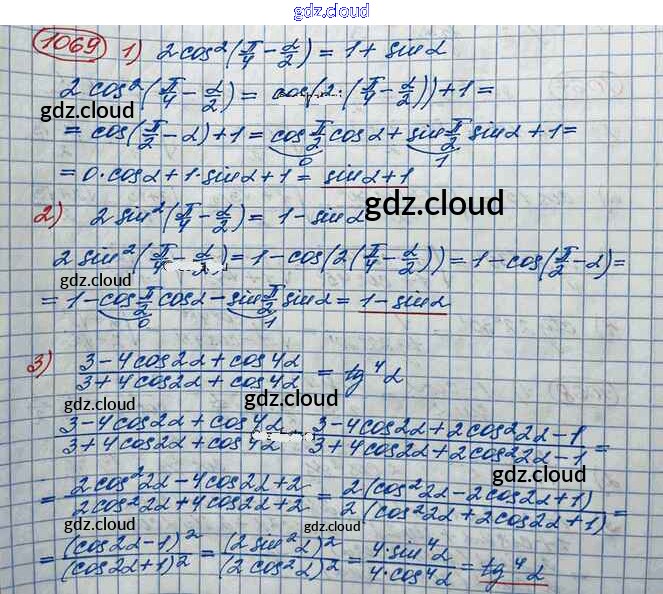 gdz.cloud
1069 1) 2cos²(π/4 - α/2) = 1 + sinα
2cos²(π/4 - α/2) = cos(2·(π/4 - α/2)) + 1 =
gdz.cloud
= cos(π/2 - α) + 1 = cos π/2 cosα + sin π/2 sinα + 1 =
0 1
= 0·cosα + 1·sinα + 1 = sinα + 1
gdz.cloud
2) 2sin²(π/4 - α/2) = 1 - sinα
gdz.cloud
2sin²(π/4 - α/2) = 1 - cos(2(π/4 - α/2)) = 1 - cos(π/2 - α) =
gdz.cloud
= 1 - cos π/2 cosα - sin π/2 sinα = 1 - sinα
0 1
3) (3 - 4cos2α + cos4α)/(3 + 4cos2α + cos4α) = tg⁴α
gdz.cloud
(3 - 4cos2α + cos4α)/(3 + 4cos2α + cos4α) = (3 - 4cos2α + 2cos²2α - 1)/(3 + 4cos2α + 2cos²2α - 1) =
gdz.cloud
gdz.cloud
= (2cos²2α - 4cos2α + 2)/(2cos²2α + 4cos2α + 2) = 2(cos²2α - 2cos2α + 1)/2(cos²2α + 2cos2α + 1) =
gdz.cloud
gdz.cloud
= (cos2α - 1)²/(cos2α + 1)² = (2sin²α)²/(2cos²α)² = 4·sin⁴α/4·cos⁴α = tg⁴α
gdz.cloud